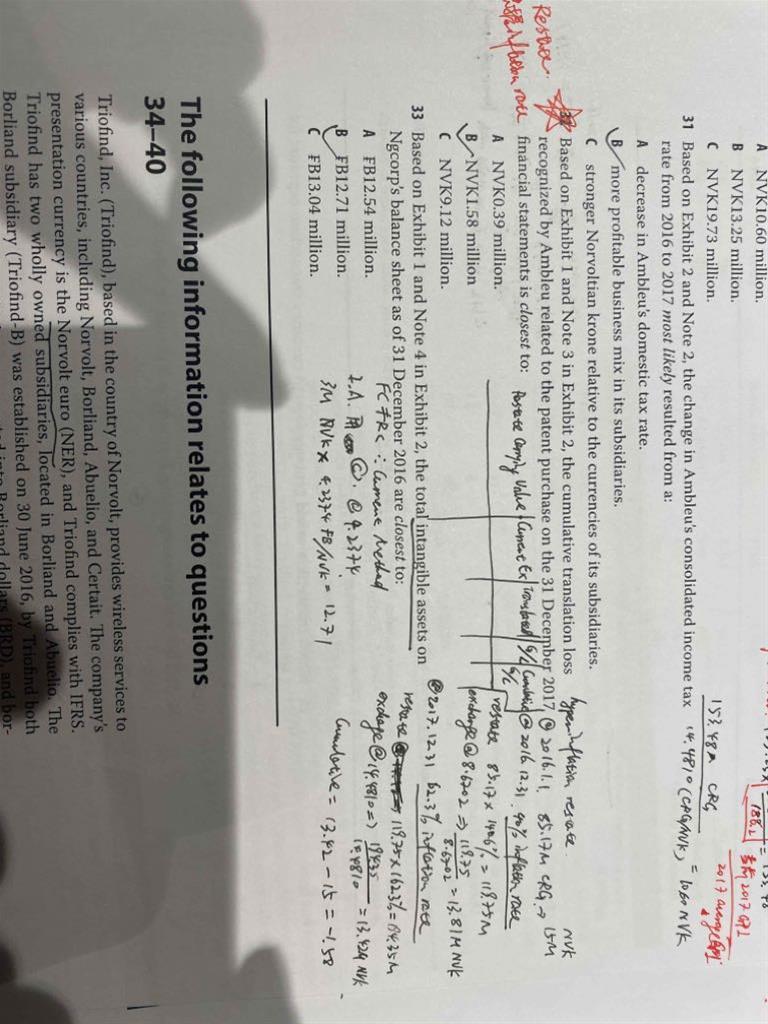 A NVK10.60 million.
B NVK13.25 million.
C NVK19.73 million.
188.2
2017 average GPI
153.48m CRG
14.4810 (CRG/NVK) = 10.60 NVK
31 Based on Exhibit 2 and Note 2, the change in Ambleu's consolidated income tax
rate from 2016 to 2017 most likely resulted from a:
A decrease in Ambleu's domestic tax rate.
B more profitable business mix in its subsidiaries.
C stronger Norvoltian krone relative to the currencies of its subsidiaries.
Restate
inflation rate
Based on Exhibit 1 and Note 3 in Exhibit 2, the cumulative translation loss
recognized by Ambleu related to the patent purchase on the 31 December 2017
financial statements is closest to:
A NVK0.39 million.
B NVK1.58 million
C NVK9.12 million.
hyperinflation restate
NVK
@ 2016.1.1, 85.17M CRG → 15M
@ 2016.12.31. 40% inflation rate
restate 85.17 x 140.6% = 118.75M
exchange @ 8.6202 ⇒ 118.75
8.6202 = 13.81M NVK
@ 2017.12.31 62.3% inflation rate
restate 118.75 x 162.3% = 194.35M
exchange @ 14.4810 ⇒ 194.35
14.4810 = 13.424 NVK
Cumulative = 13.42 - 15 = -1.58
33 Based on Exhibit 1 and Note 4 in Exhibit 2, the total intangible assets on
Ngcorp's balance sheet as of 31 December 2016 are closest to:
A FB12.54 million.
B FB12.71 million.
C FB13.04 million.
FC ≠ RC ∴ Current Method
I.A. @ 4.2374
3M NVK x 4.2374 FB/NVK = 12.71
The following information relates to questions
34–40
Triofind, Inc. (Triofind), based in the country of Norvolt, provides wireless services to
various countries, including Norvolt, Borliand, Abuelio, and Certait. The company's
presentation currency is the Norvolt euro (NER), and Triofind complies with IFRS.
Triofind has two wholly owned subsidiaries, located in Borliand and Abuelio. The
Borliand subsidiary (Triofind-B) was established on 30 June 2016, by Triofind both
Borliand dollars (BRD), and bor-